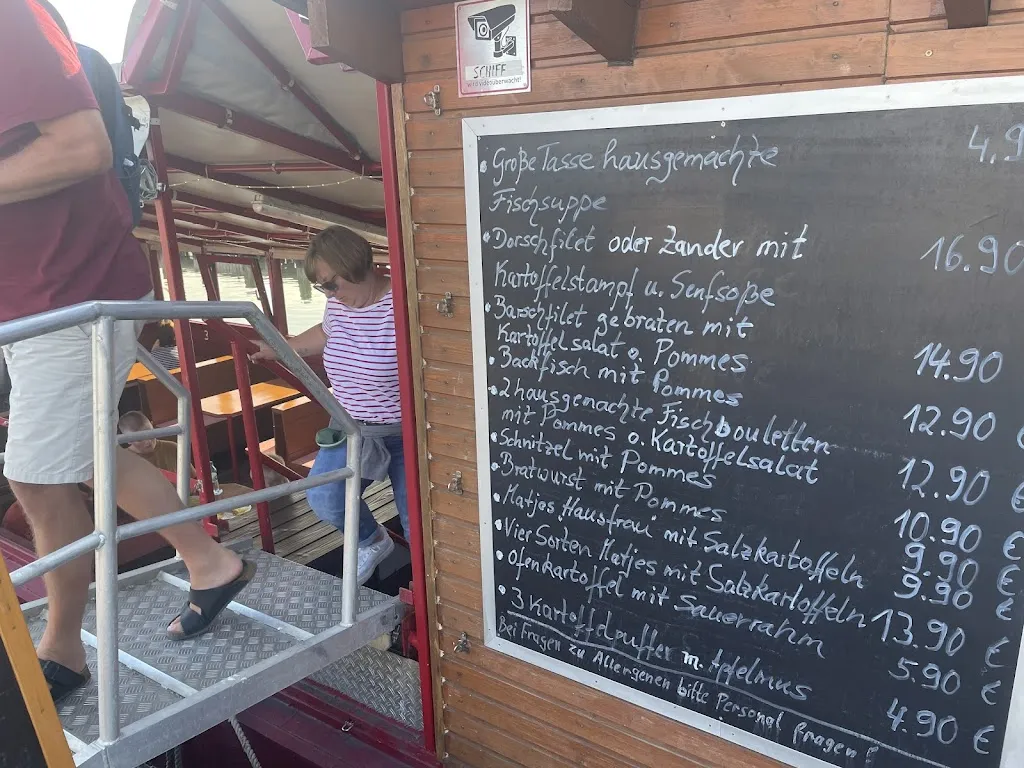 SCHIFF
wird videoüberwacht!
• Große Tasse hausgemachte 4.9
Fischsuppe
• Dorschfilet oder Zander mit 16.90
Kartoffelstampf u. Senfsoße
• Barschfilet gebraten mit
Kartoffelsalat o. Pommes 14.90
• Backfisch mit Pommes 12.90 €
• 2 hausgemachte Fischbouletten
mit Pommes o. Kartoffelsalat 12.90 €
• Schnitzel mit Pommes 10.90 €
• Bratwurst mit Pommes 9.90 €
• Matjes Hausfrau mit Salzkartoffeln 9.90 €
• Vier Sorten Matjes mit Salzkartoffeln 13.90 €
• Ofenkartoffel mit Sauerrahm 5.90 €
• 3 Kartoffelpuffer m. Apfelmus 4.90 €
Bei Fragen zu Allergenen bitte Personal fragen!